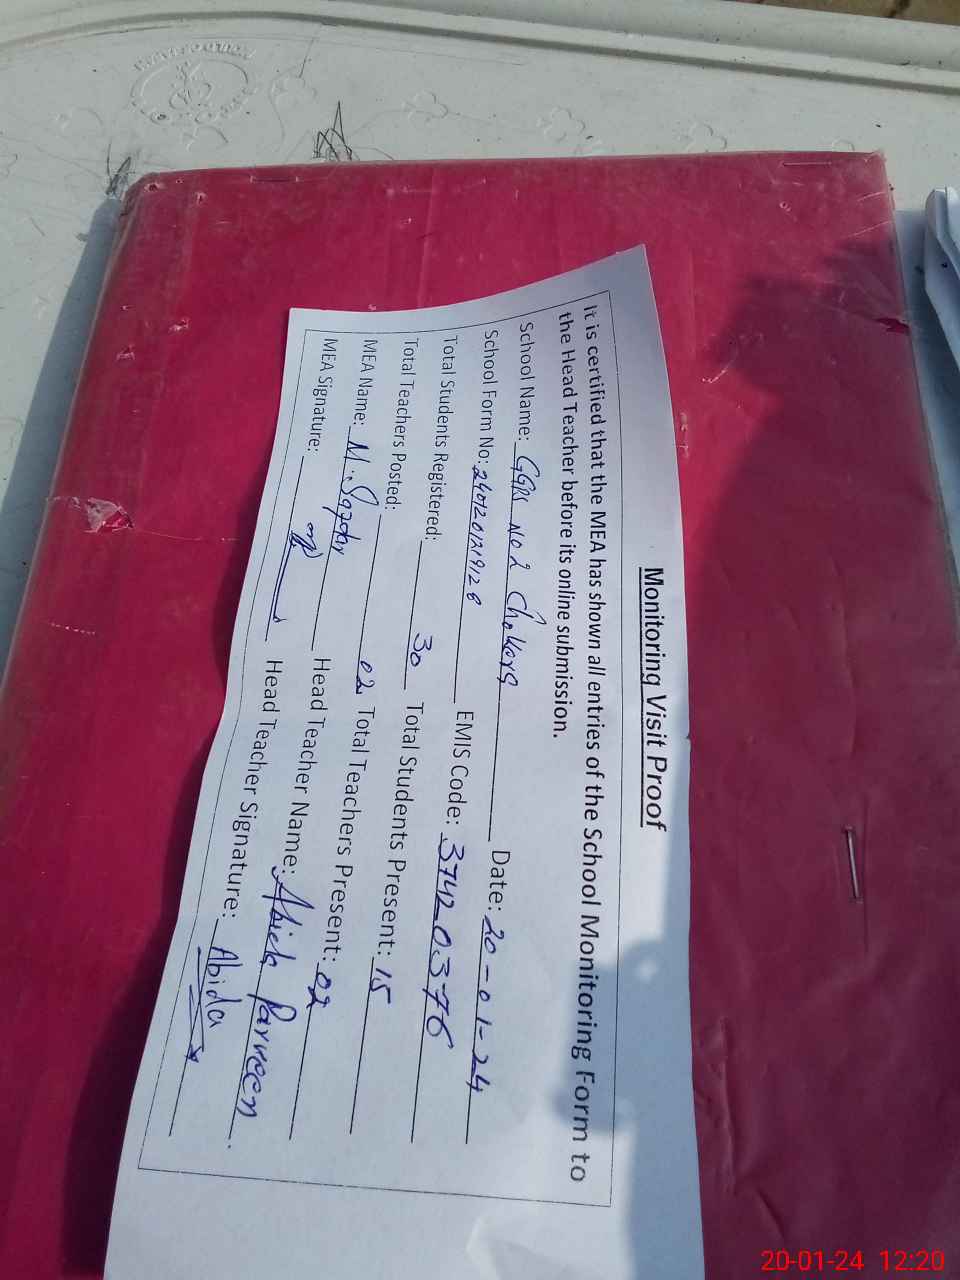 Monitoring Visit Proof
It is certified that the MEA has shown all entries of the School Monitoring Form to
the Head Teacher before its online submission.
School Name: GGPS NO 2 Date: 20-01-24
School Form No: 2401201219128 EMIS Code: 37420376
Total Students Registered: 30 Total Students Present: 15
Total Teachers Posted: 02 Total Teachers Present: 02
MEA Name: M. Head Teacher Name: Abida Parveen
MEA Signature: Head Teacher Signature: Abida
20-01-24 12:20